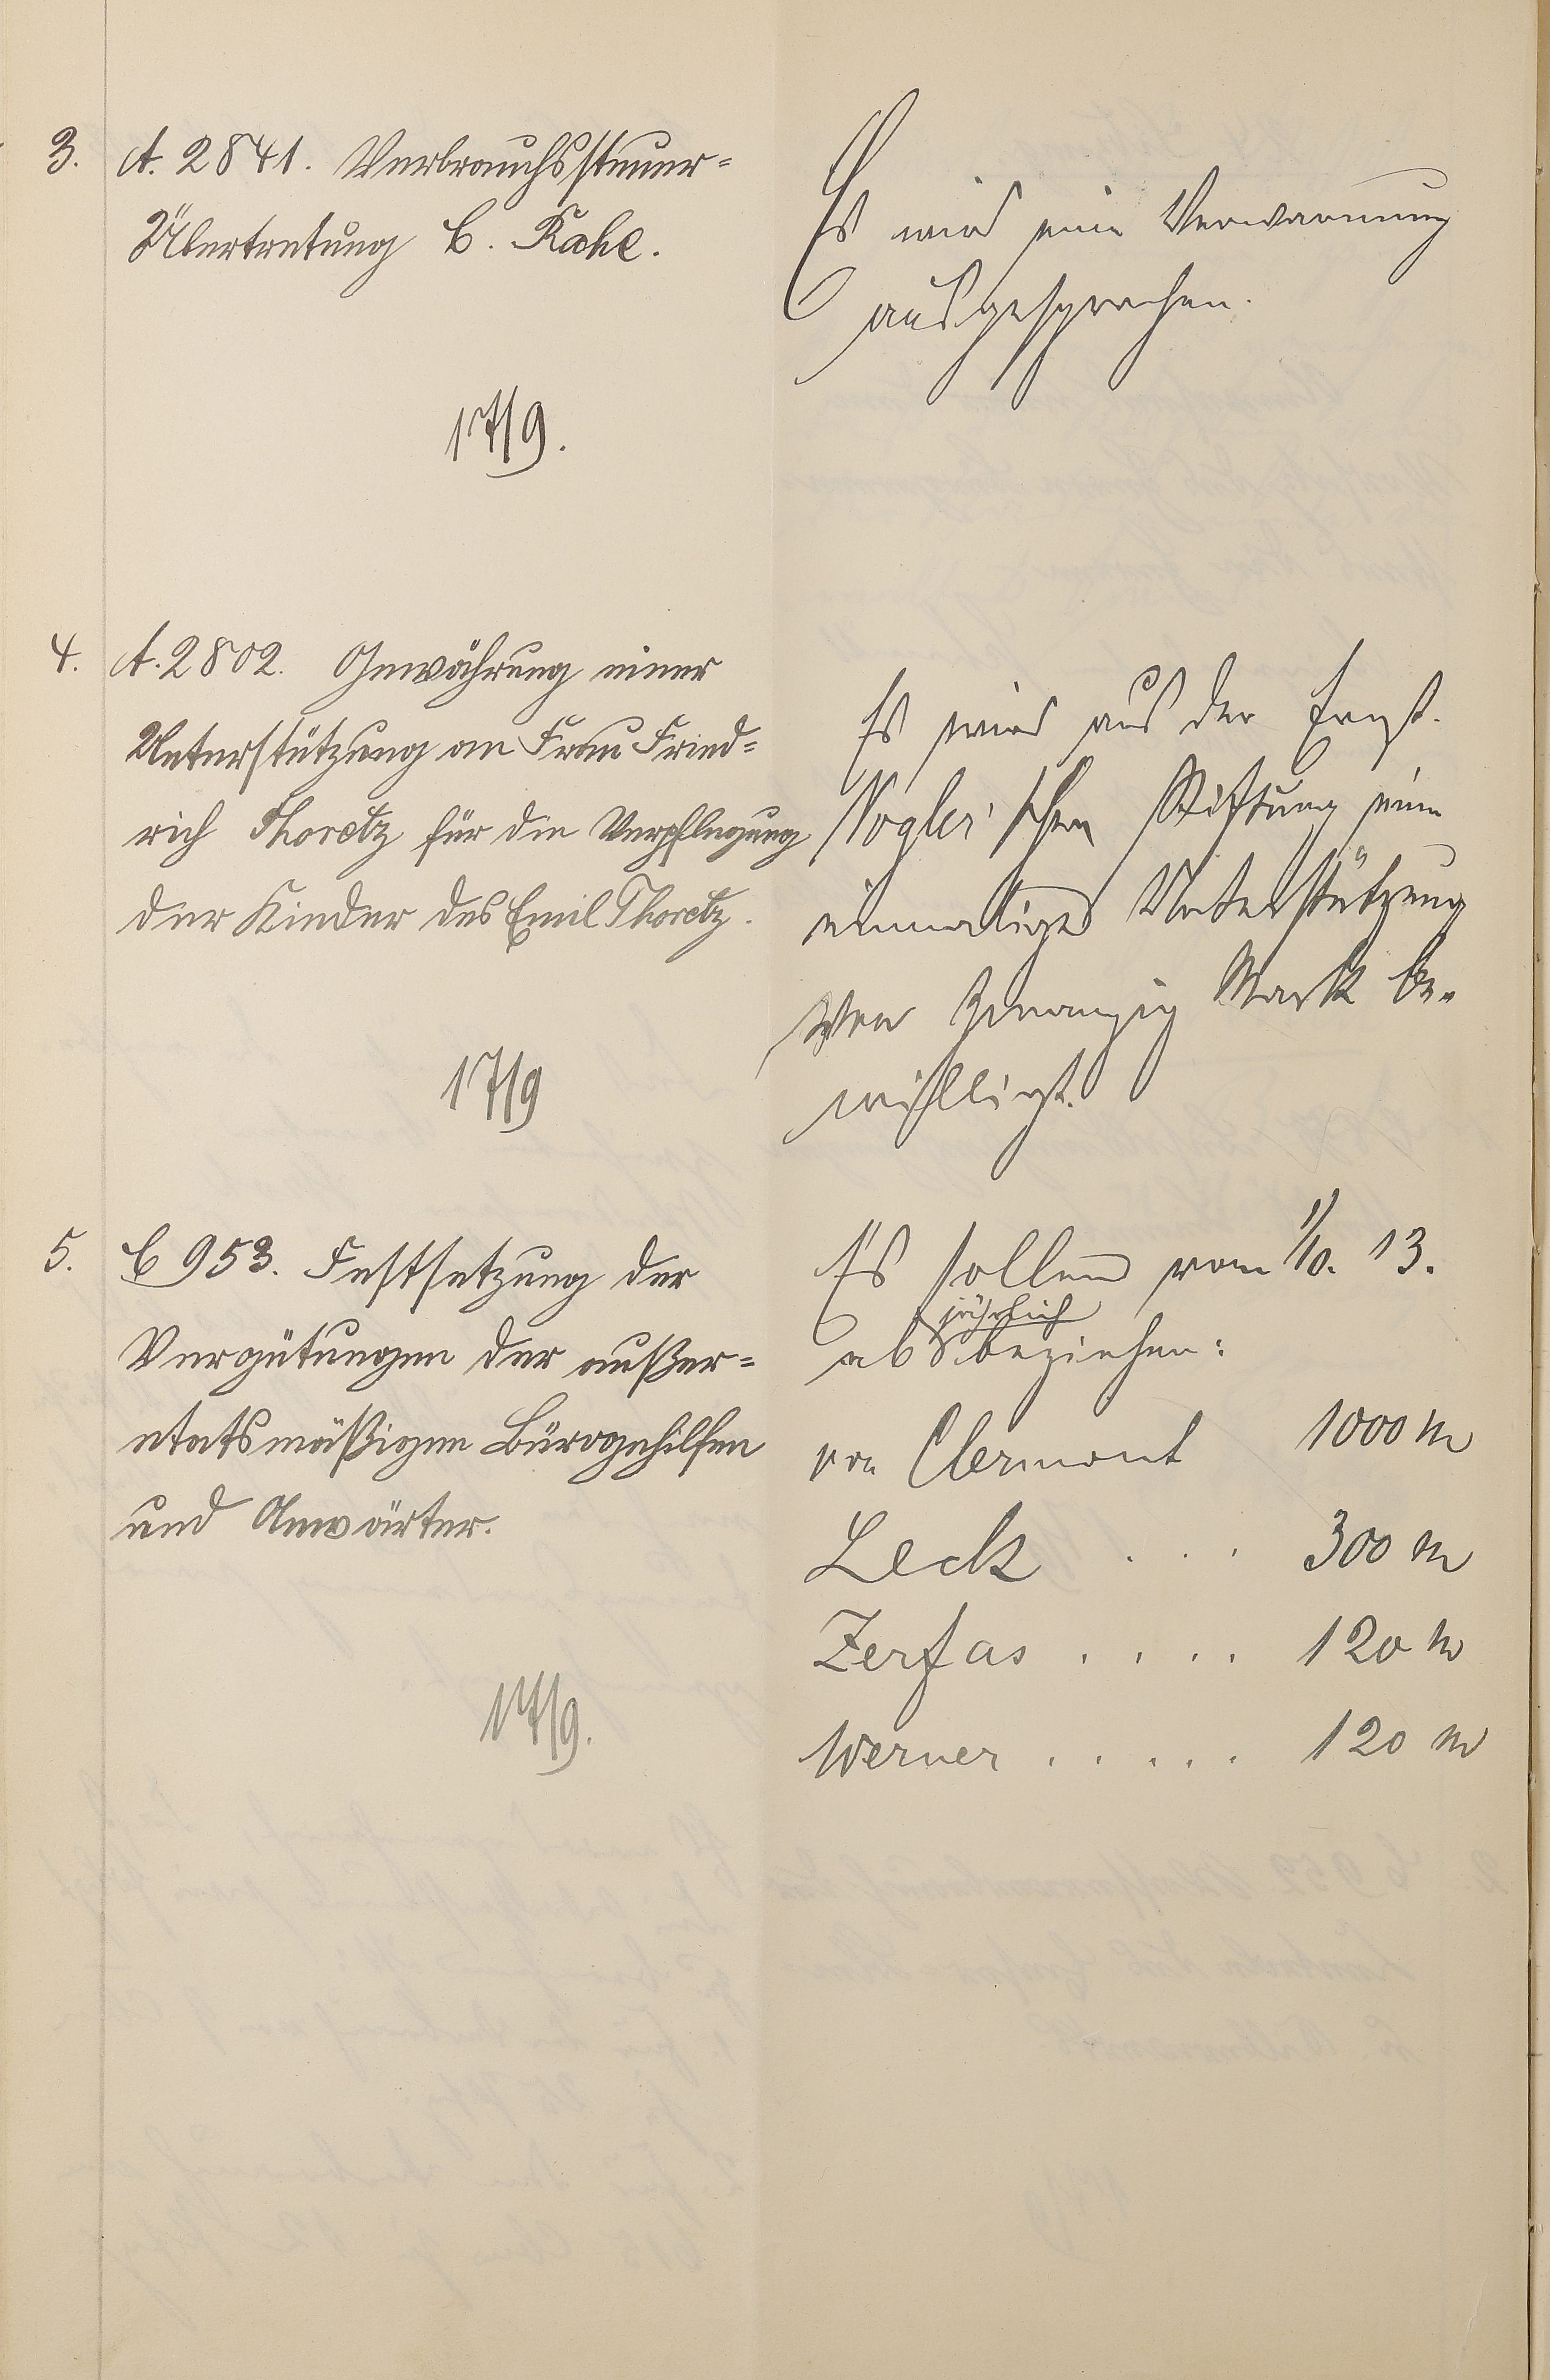 3. A. 2841. Verbrauchssteuer-
Übertretung C. Kahe.
17/9.
Es wird eine Verwarnung
ausgesprochen.
4. A. 2802. Gewährung einer
Unterstützung an Frau Fried-
rich Thoretz für die Verpflegung
der Kinder des Emil Thoretz.
17/9
Es wird aus der Ernst.
Vogler'schen Stiftung eine
einmalige Unterstützung
von Zwanzig Mark be-
willigt.
5. C 953. Festsetzung der
Vergütungen der außer-
etatsmäßigen Bürogehilfen
und Anwärter.
17/9.
Es sollen vom 1/10. 13.
jährlich
ab beziehen:
von Clermont 1000 M
Leck . . . 300 M
Zerfas . . . . 120 M
Werner . . . . . 120 M